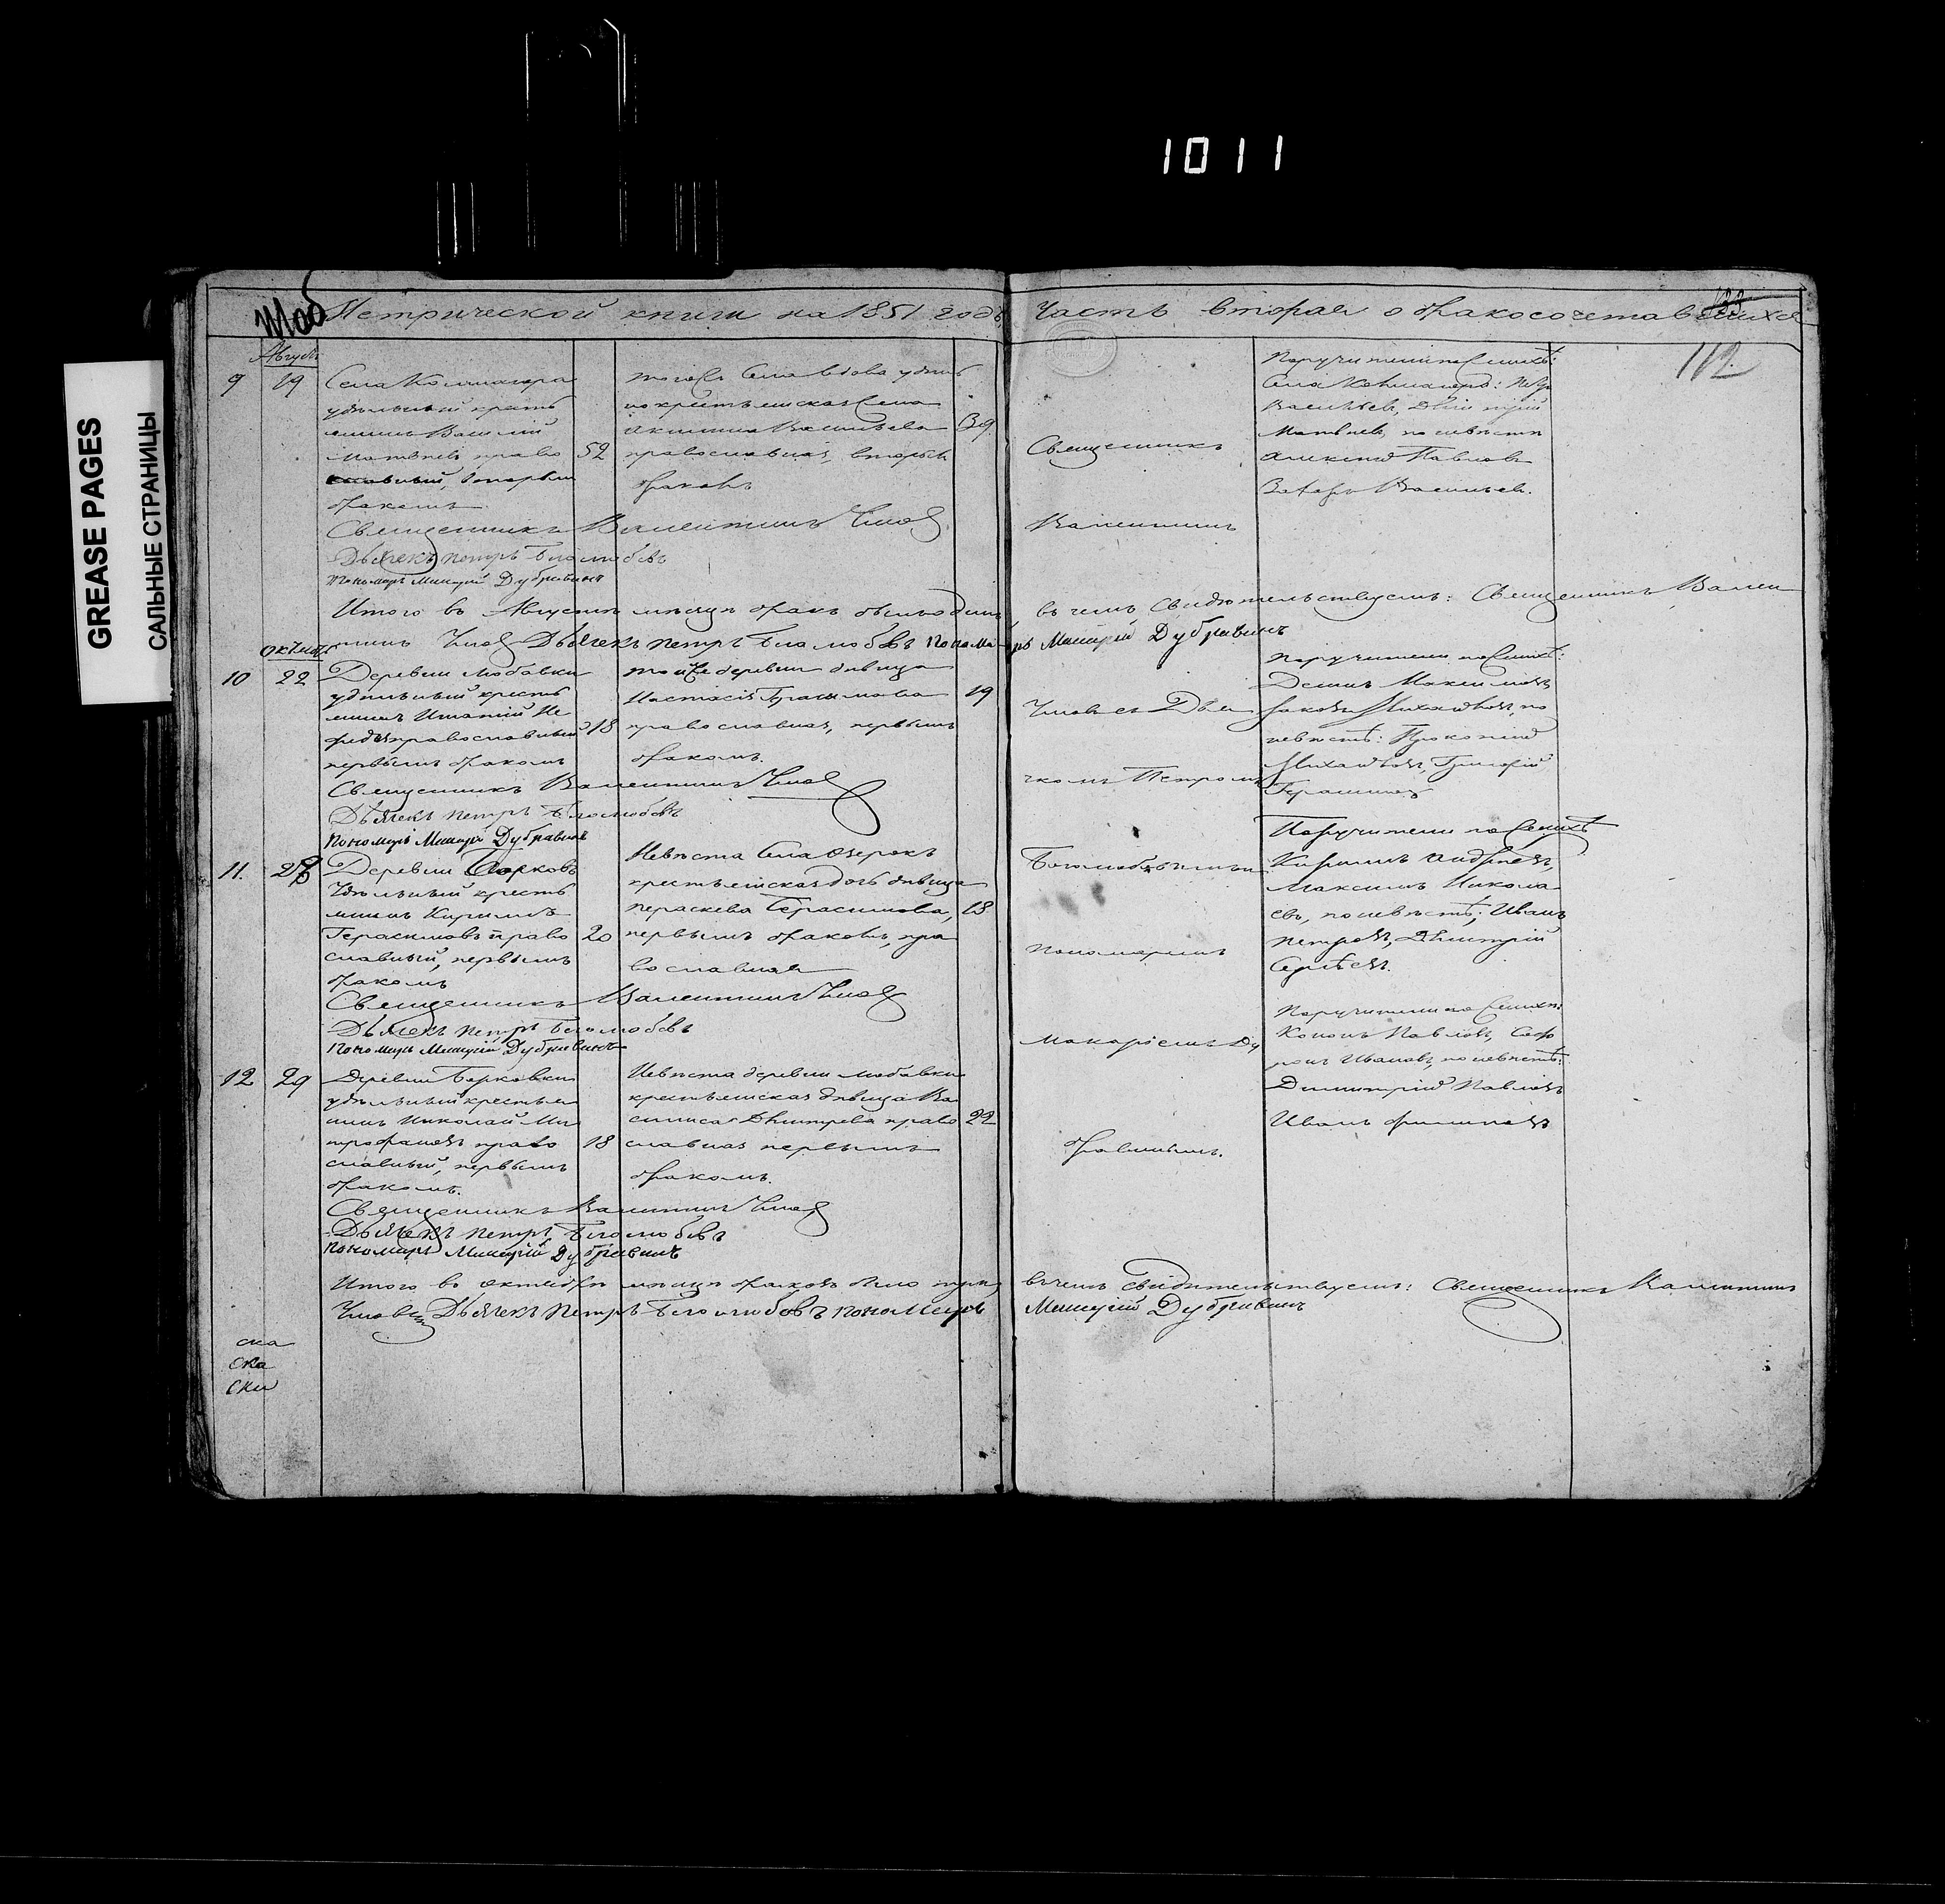 1011
GREASE PAGES
САЛЬНЫЕ СТРАНИЦЫ
Метрической книги на 1851 годъ Часть вторая о бракосочетавшихся
112.
Августъ
9 19
Села
удѣльный кресть
янинъ Василій
Матвѣевъ право
славный, вторымъ
бракомъ
52
тогожъ Села вдова удѣль
но крестьянская жена
Акилина Васильева
православная, вторымъ
бракомъ
39
Священникъ
Валентинъ
Поручители по женихѣ:
Васильевъ,
Матвѣевъ, по невѣстѣ
Алексѣй Павловъ
Захаръ Васильевъ.
Священникъ Валентинъ
Дьячекъ Петръ Боголюбовъ
Пономарь Макарій Дубравинъ
Итого въ Августѣ мѣсяцѣ бракъ былъ одинъ, въ чемъ свидѣтельствуемъ: Священникъ Вален
тинъ Дьячекъ Петръ Боголюбовъ Пономарь Макарій Дубравинъ
Октябрь
10 22
Деревни Любавки
удѣльный кресть
янинъ Игнатій Не
федъ православный
первымъ бракомъ
18
тойже деревни дѣвица
Настасія
православная, первымъ
бракомъ.
19
Поручители по женихѣ:
Демидъ Максимовъ,
Яковъ Михайловъ, по
невѣстѣ: Прокопій
Михайловъ, Григорій
Герасимовъ
съ Дья
чкомъ Петромъ
Священникъ Валентинъ
Дьячекъ Петръ Боголюбовъ
Пономарь Макарій Дубравинъ
11.
Деревни
Удѣльный кресть
янинъ Кириллъ
Герасимовъ право
славный, первымъ
бракомъ
20
Невѣста Села Озерокъ
крестьянская дочь дѣвица
Параскева Герасимова,
первымъ бракомъ, пра
вославная
18
Боголюбовымъ и
пономаремъ
Поручители по женихѣ
Кириллъ Андреевъ,
Максимъ Никола
евъ, по невѣстѣ; Иванъ
Петровъ, Дмитрій
Сергѣевъ.
Священникъ Валентинъ
Дьячекъ Петръ Боголюбовъ
Пономарь Макарій Дубравинъ
12 29
Деревни Берковки
удѣльный крестья
нинъ Николай Ми
трофановъ право
славный, первымъ
бракомъ.
18
Невѣста деревни Любавки
крестьянская дѣвица Ва
силиса Дмитрева право
славная первымъ
бракомъ.
22
Макаріемъ Ду
бравинымъ.
Поручители по женихѣ:
Кононъ Павловъ, Соф
ронъ Ивановъ, по невѣстѣ:
Димитрій Павловъ
Иванъ Филиповъ
Священникъ Валентинъ
Дьячекъ Петръ Боголюбовъ
Пономарь Макарій Дубравинъ
Итого въ октябрѣ мѣсяцѣ браковъ было три, въ чемъ свидѣтельствуемъ: Священникъ Валентинъ
Дьячекъ Петръ Боголюбовъ Пономарь Макарій Дубравинъ
ска
ска
ски